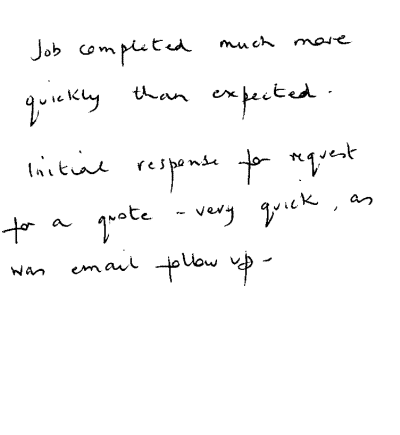 Job completed much more
quickly than expected.
Initial response for request
for a quote - very quick, as
was email follow up -